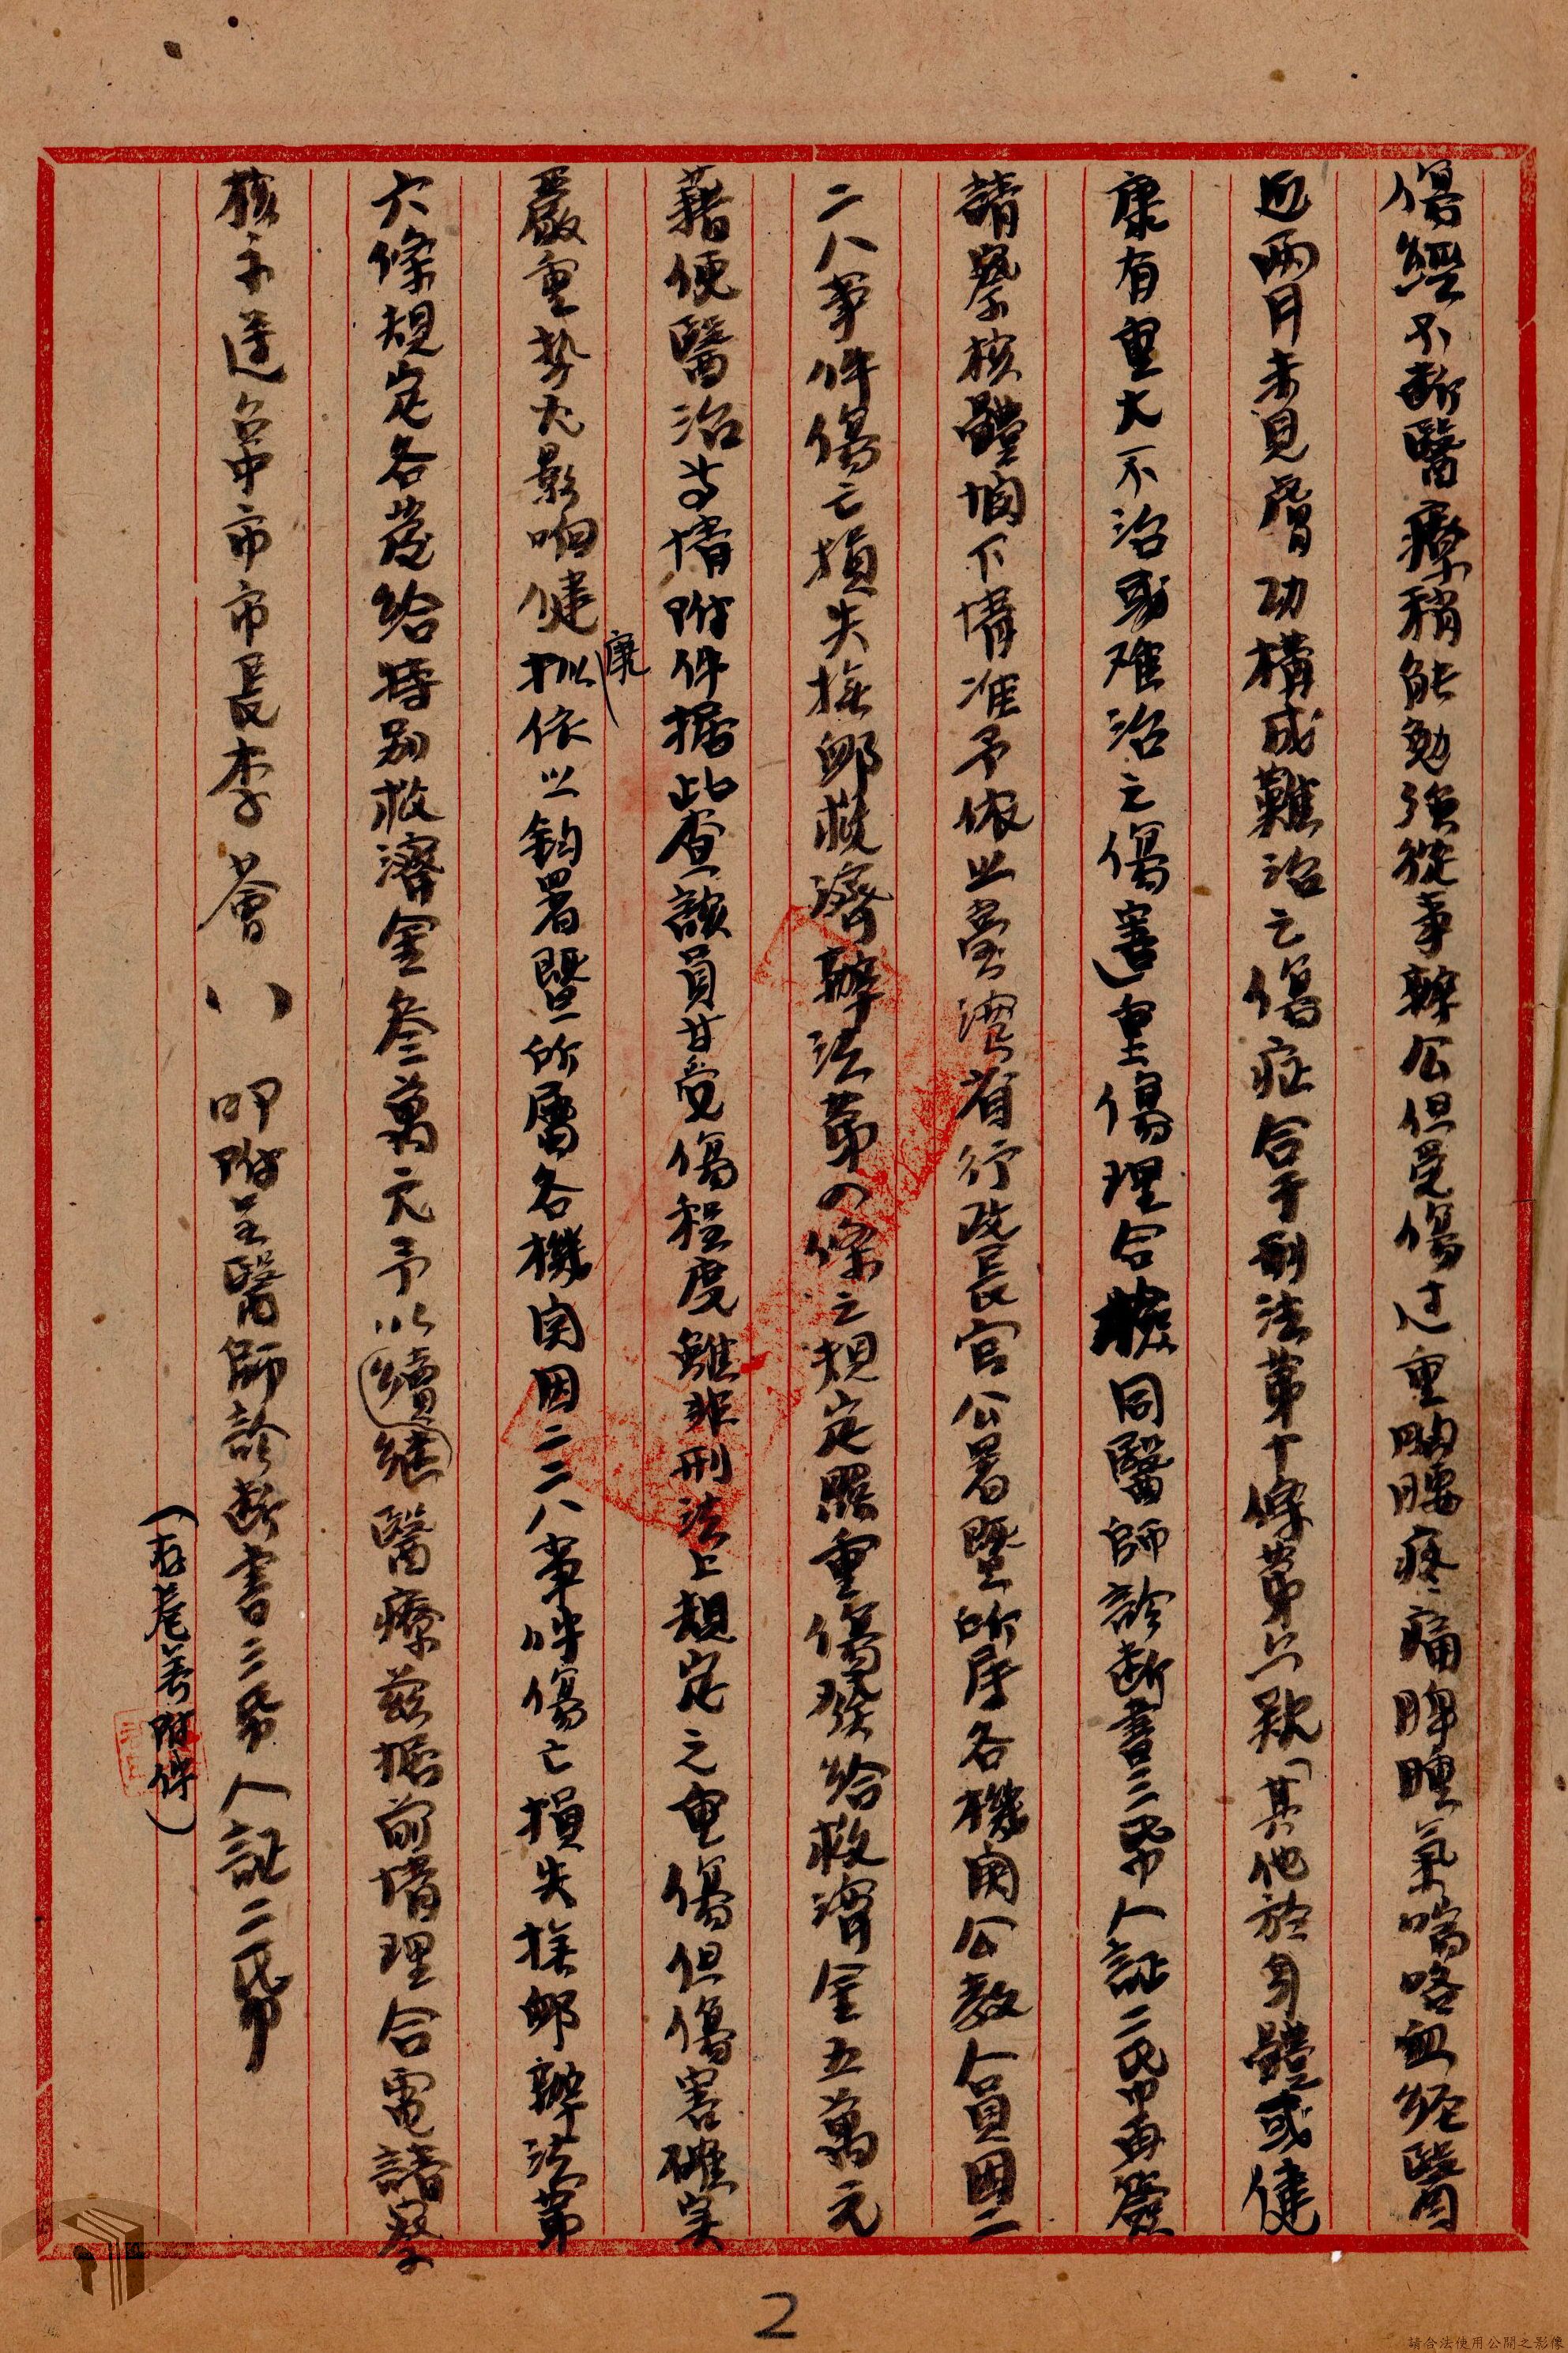 傷經不断醫療稍能勉強從事辦公但受傷过重胸腰疼痛脚腫氣喘咯血經醫
近兩月未見層功構成難治之傷症合于刑法第十條第六款「其他於身體或健
康有重大不治或难治之傷害」重傷理合檢同醫師診断書三帋人証二帋再簽
請察核體恤下情准予依照臺灣省行政長官公署暨所屬各機関公教人員因二
二八事件傷亡損失撫邮救濟辦法第四條之規定照重傷發給救濟金五萬元
藉便醫治等情附件据此查該員廿受傷程度雖非刑法上規定之重傷但傷害確实
嚴重势尤影响健康拟依照鈞署暨所屬各機関因二二八事件傷亡損失撫邮辦法第
六條規定各發給特别救濟金叁萬元予以繼續醫療兹据前情理合電請察
核示遵臺中市市長李薈叩附呈醫師診断書三帋人証二帋
(存卷美附件)
2
請合法使用公開之影像